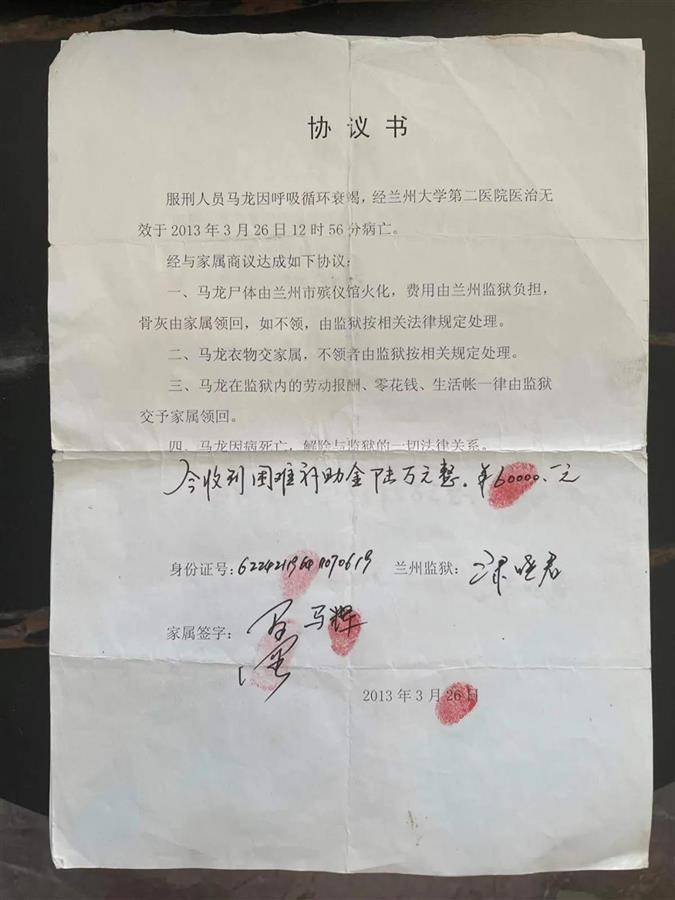 协议书
服刑人员马龙因呼吸循环衰竭，经兰州大学第二医院医治无
效于2013年3月26日12时56分病亡。
经与家属商议达成如下协议：
一、马龙尸体由兰州市殡仪馆火化，费用由兰州监狱负担，
骨灰由家属领回，如不领，由监狱按相关法律规定处理。
二、马龙衣物交家属，不领者由监狱按相关规定处理。
三、马龙在监狱内的劳动报酬、零花钱、生活帐一律由监狱
交予家属领回。
四、马龙因病死亡，解除与监狱的一切法律关系。
今收到困难补助金陆万元整。￥60000.元
身份证号： 兰州监狱：
家属签字： 马辉
2013年3月26日